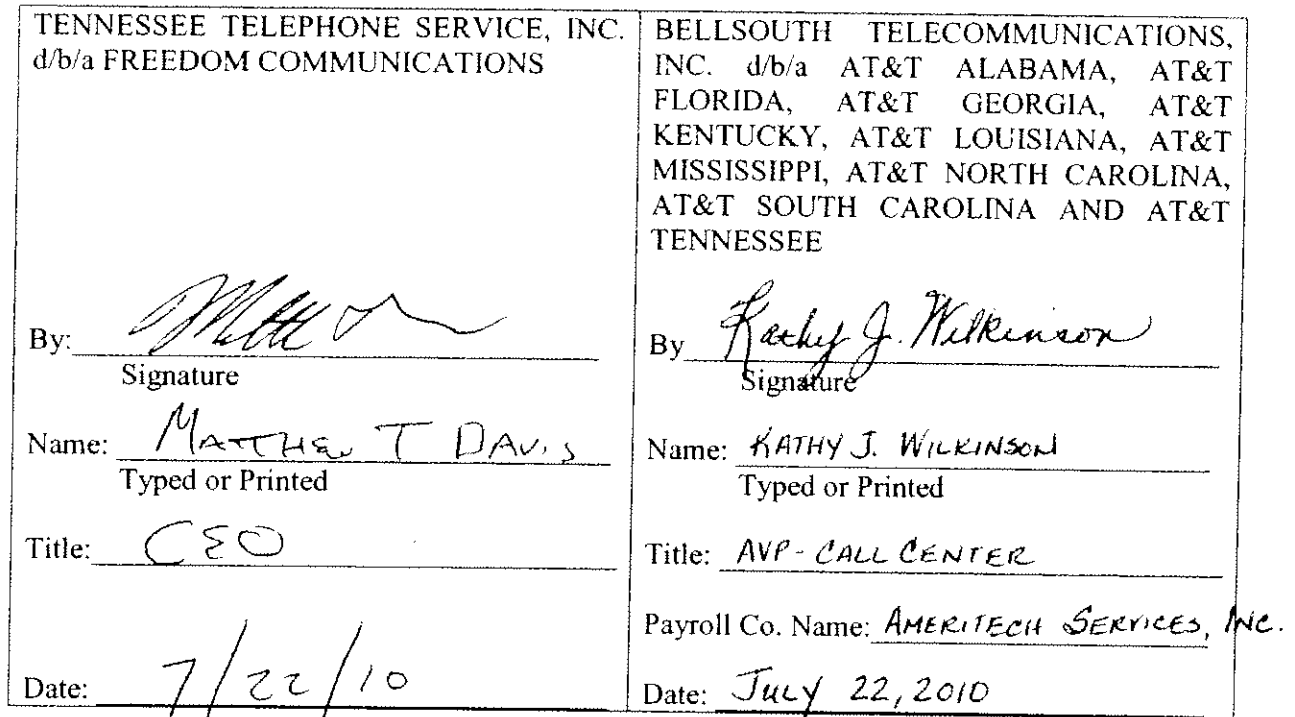 TENNESSEE TELEPHONE SERVICE, INC.
d/b/a FREEDOM COMMUNICATIONS
By:
Signature
Name: MATTHEW T DAVIS
Typed or Printed
Title: CEO
Date: 7/22/10
BELLSOUTH TELECOMMUNICATIONS,
INC. d/b/a AT&T ALABAMA, AT&T
FLORIDA, AT&T GEORGIA, AT&T
KENTUCKY, AT&T LOUISIANA, AT&T
MISSISSIPPI, AT&T NORTH CAROLINA,
AT&T SOUTH CAROLINA AND AT&T
TENNESSEE
By Kathy J. Wilkinson
Signature
Name: KATHY J. WILKINSON
Typed or Printed
Title: AVP - CALL CENTER
Payroll Co. Name: AMERITECH SERVICES, INC.
Date: JULY 22, 2010